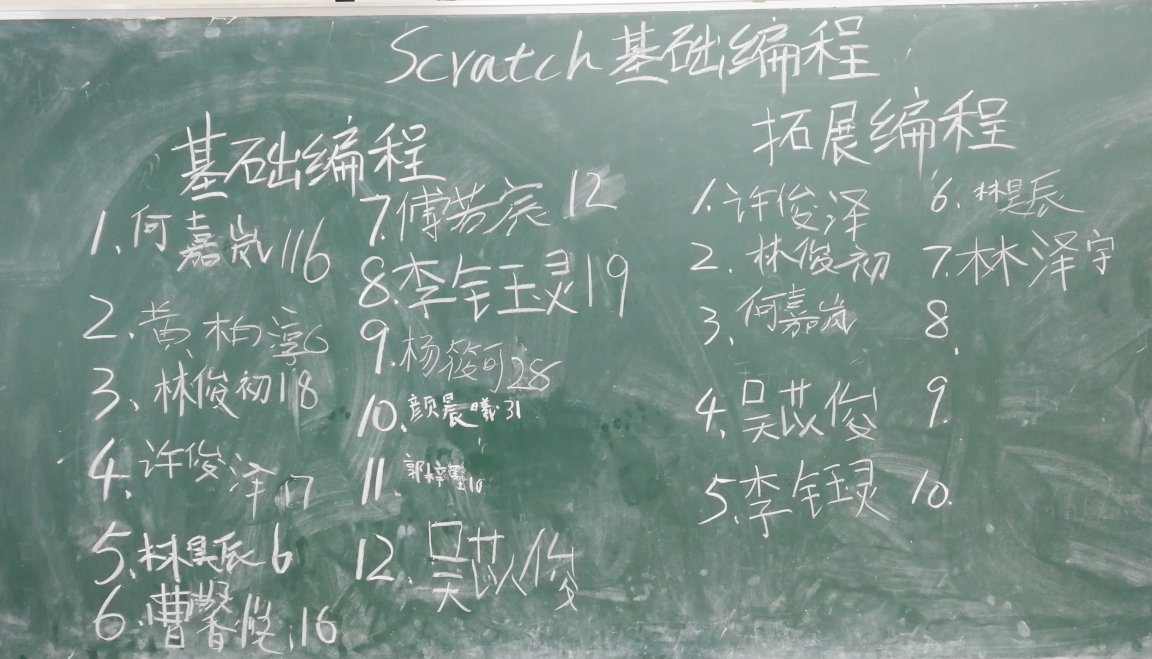 Scratch基础编程
基础编程
1、何嘉岚116
2、黄柏淳6
3、林俊初118
4、许俊泽17
5、林昊辰6
6、曹馨 16
7.傅若宸12
8.李钰灵19
9.杨筱可28
10.颜晨曦31
11.郭梓 10
12.吴苡俊
拓展编程
1.许俊泽
2.林俊初
3.何嘉岚
4.吴苡俊
5.李钰灵
6.林昊辰
7.林泽宇
8.
9.
10.